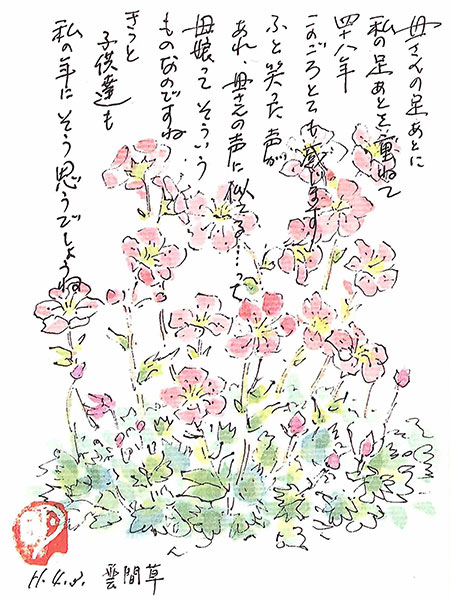 母さんの足あとに
私の足あとを重ねて
四十八年
このごろとても感じます
ふと笑った声が
あれ、母さんの声に似てる……って
母娘ってそういう
ものなのですね
きっと
子供達も
私の年にそう思うでしょうね
H.4.3. 雲間草